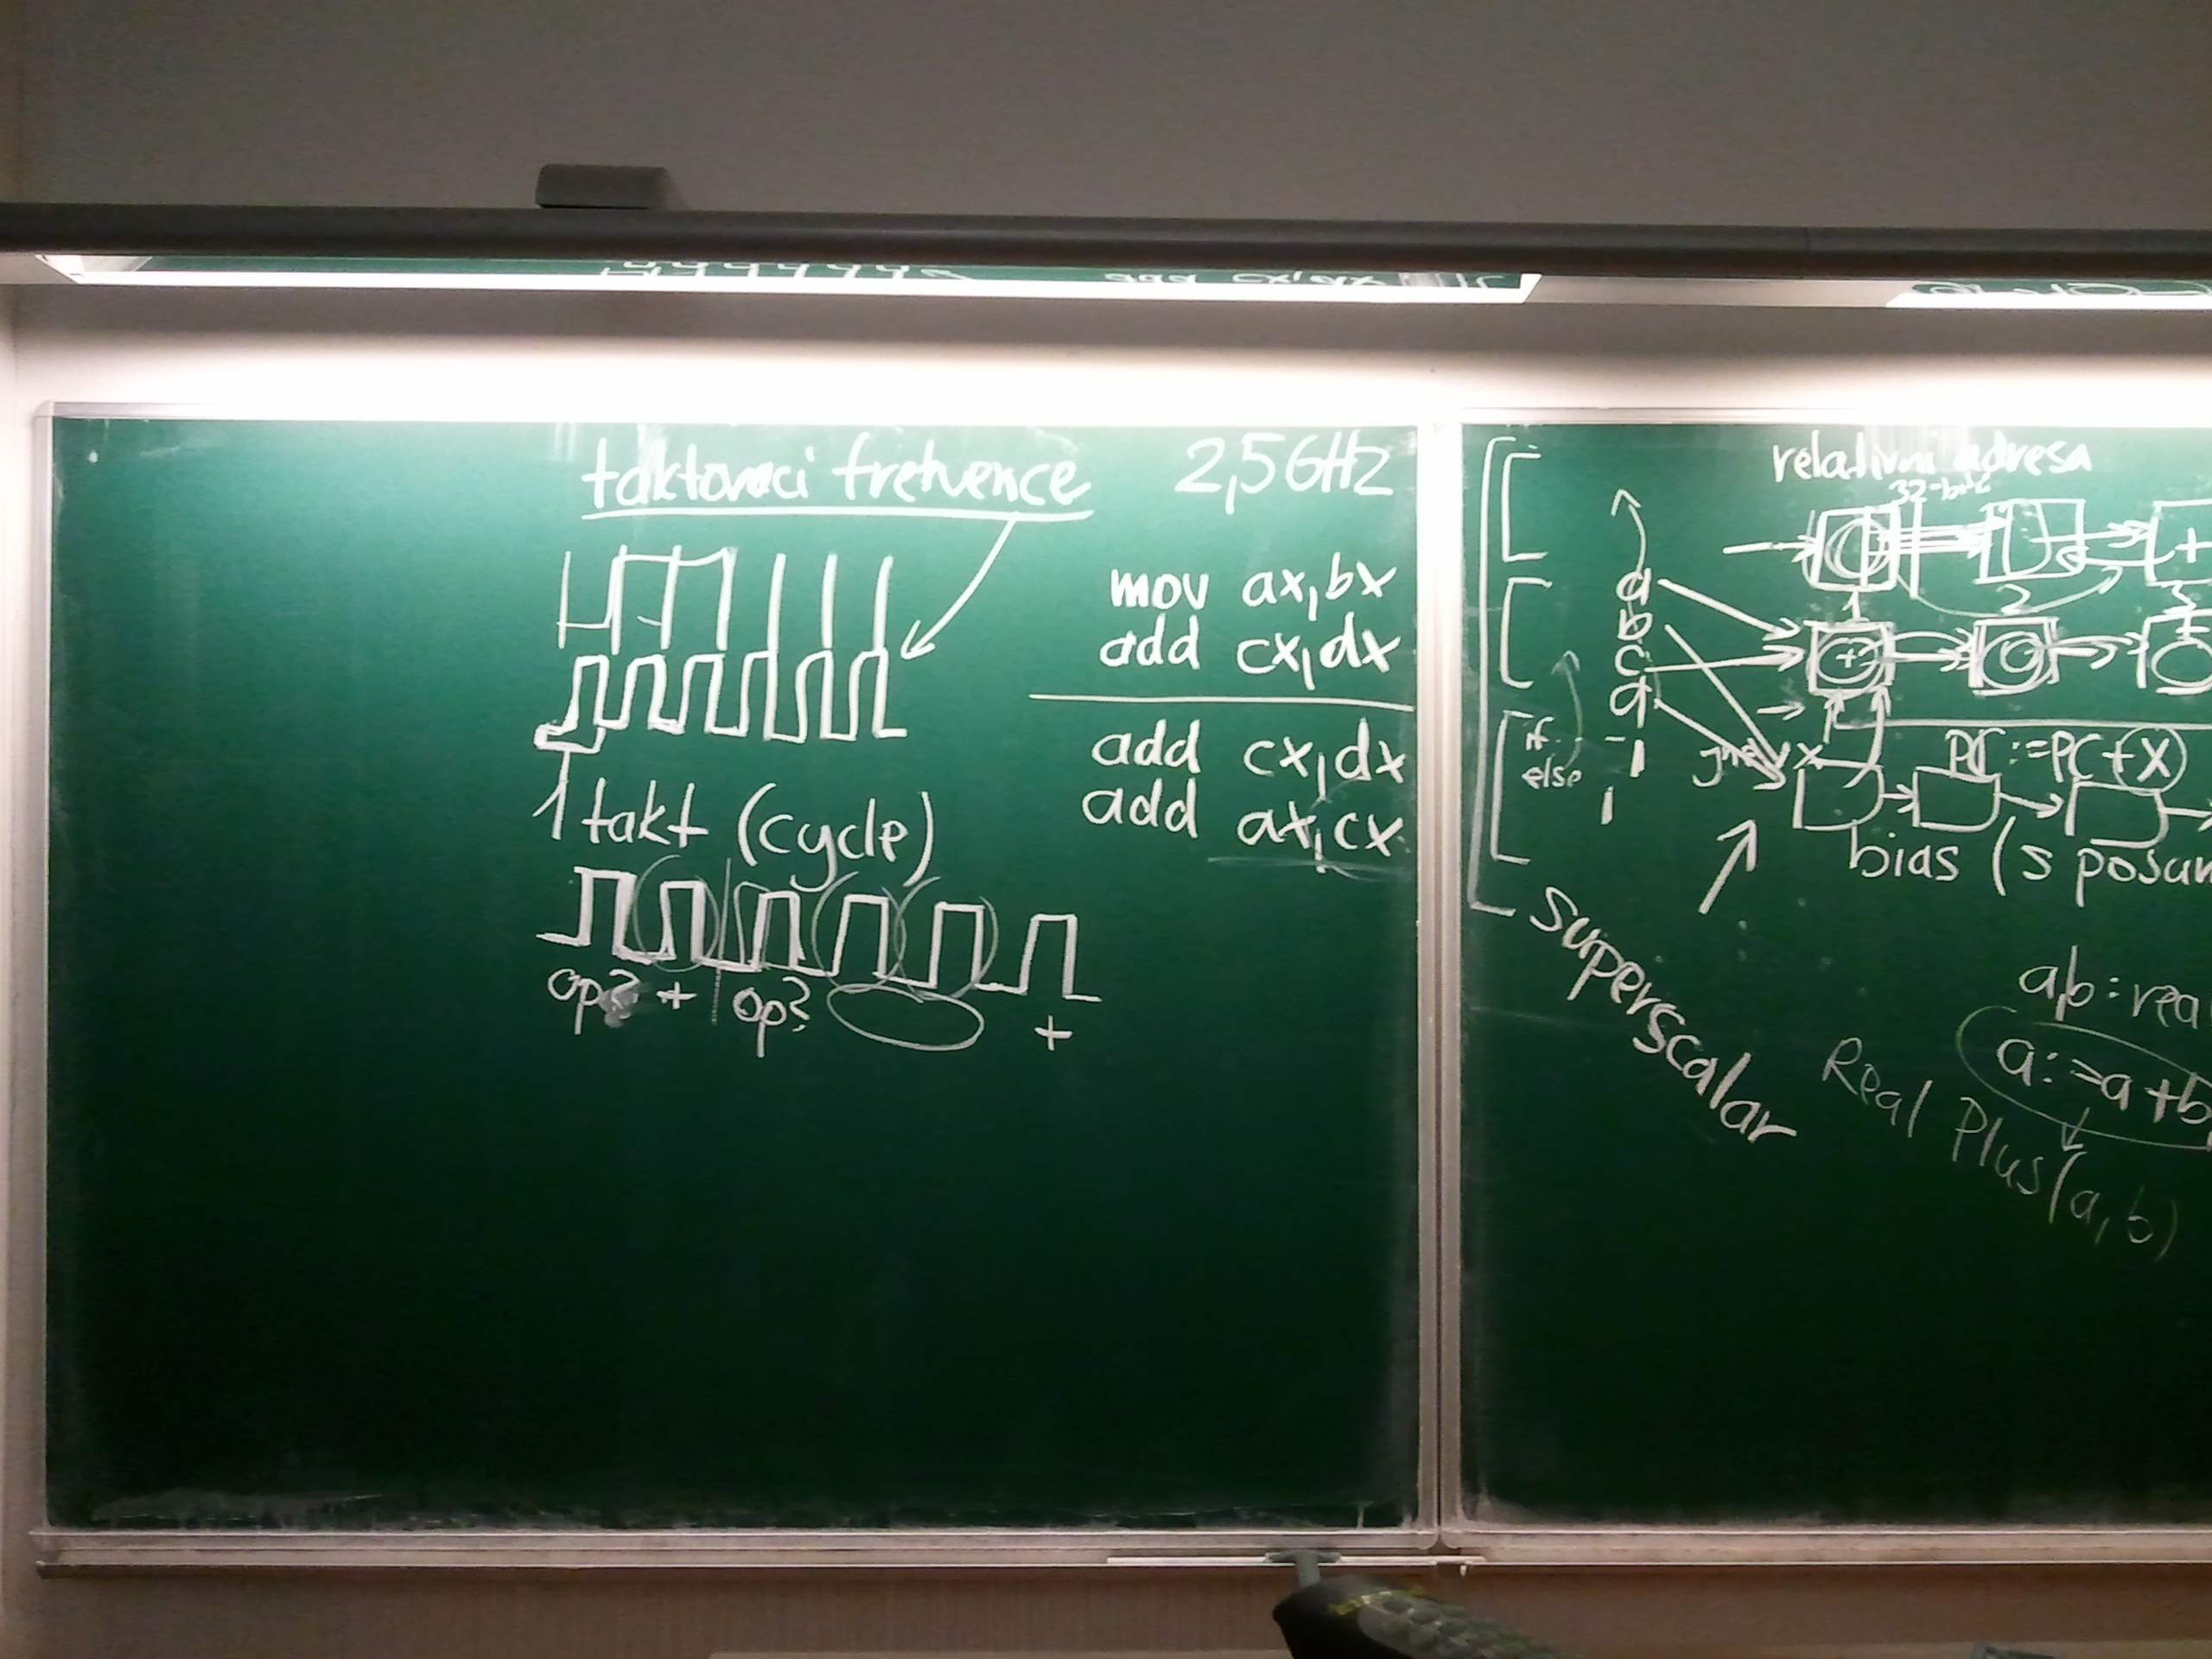 taktovací frekvence 2,5GHz
mov ax,bx
add cx,dx
add cx,dx
add ax,cx
1 takt (cycle)
op? + op? +
relativní adresa
32-bit
a
b
c
d
1
2
3
+
+
if
else
PC:=PC+X
bias (s posun
superscalar
a,b:rea
a:=a+b
Real Plus(a,b)